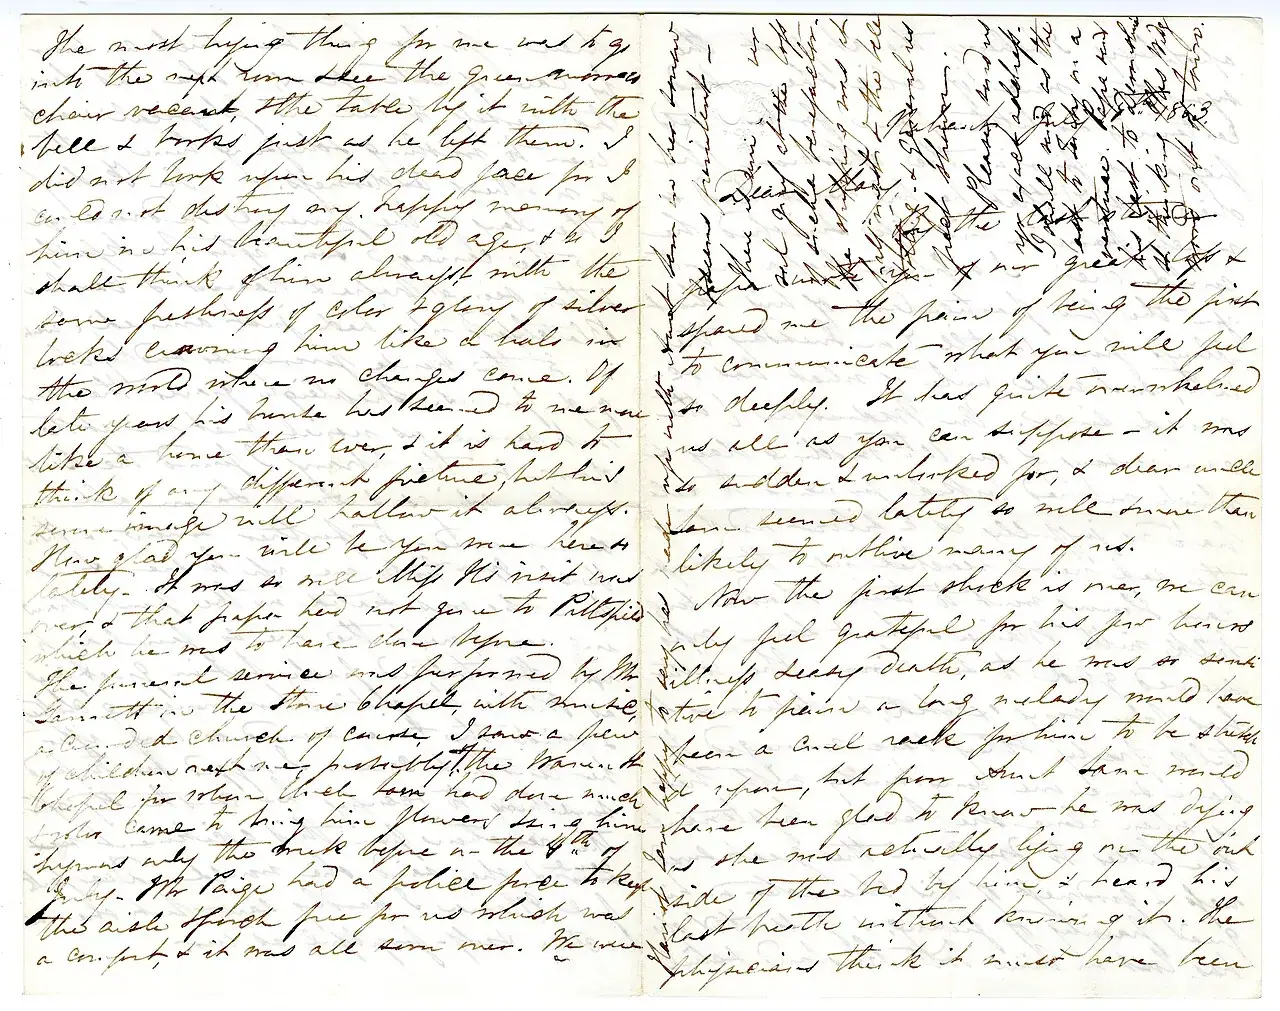 The most trying thing for me was to go
into the next room & see the green morocco
chair vacant, & the table by it with the
bell & books just as he left them. I
did not look upon his dead face for I
could not destroy my happy memory of
him in his beautiful old age, & so I
shall think of him always, with the
same freshness of color & glory of silver
locks crowning him like a halo in
the world where no changes come. Of
late years his house has seemed to me more
like a home than ever, & it is hard to
think of any different picture, but his
serene image will hallow it always.
How glad you will be you were here so
lately. It was so well Miss H's visit was
over, & that papa had not gone to Pittsfield
which he was to have done before.
The funeral service was performed by Mr
Garnett in the Stone Chapel, with music,
a crowded church of course, I saw a pew
of children next me, probably the Warren St
Chapel for whom Uncle Sam had done much
& who came to bring him flowers & sing him
hymns only the week before on the 4th of
July. Mr Paige had a police force to keep
the aisle & porch free for us which was
a comfort, & it was all soon over. We were
Nahant July 1863.
Dear Mary,
the
papa wrote you of our great loss &
spared me the pain of being the first
to communicate what you will feel
so deeply. It has quite overwhelmed
us all as you can suppose – it was
so sudden & unlooked for, & dear uncle
Sam seemed lately so well & more than
likely to outlive many of us.
Now the first shock is over, we can
only feel grateful for his few hours
illness & easy death, as he was so sensi
tive to pain a long malady would have
been a cruel rack for him to be stretch
d upon, but poor Aunt Sam would
have been glad to know he was dying
as she was actually lying on the out
side of the bed by him, & heard his
last breath without knowing it. The
physicians think it must have been
I am happy to say has made up with Aunt Sam in her sorrow
seems penitent –
Please send us